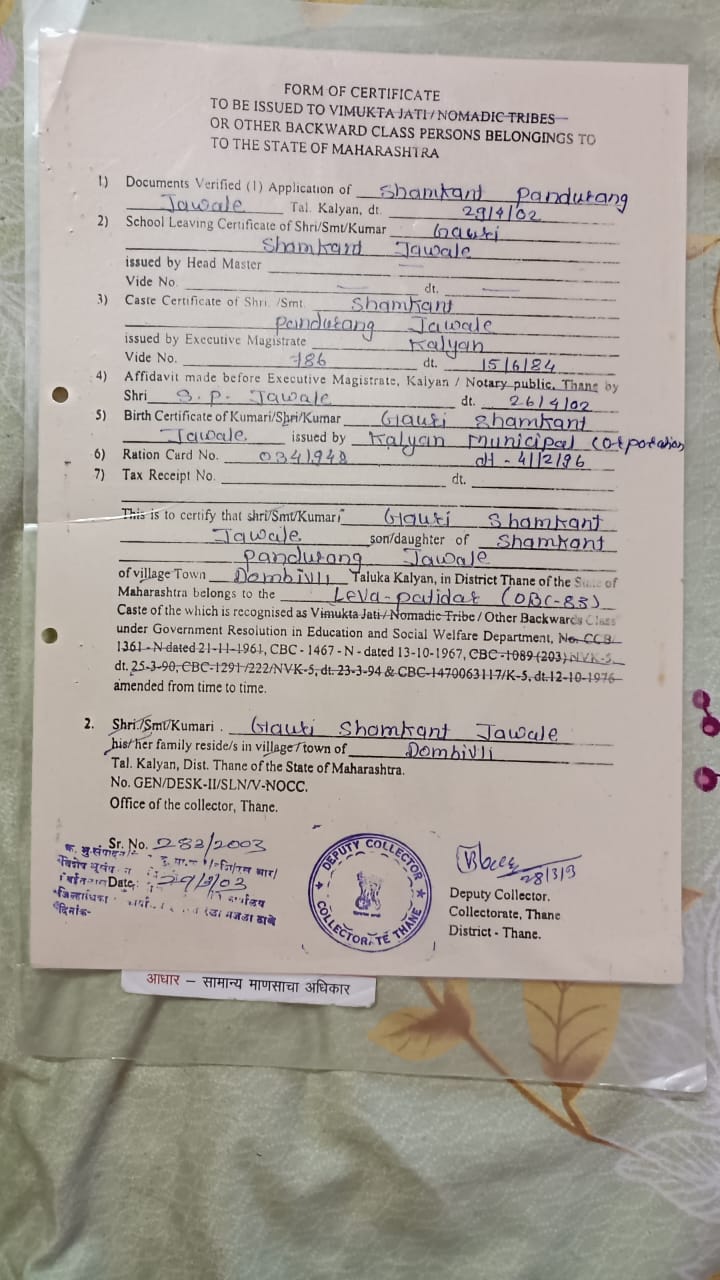 FORM OF CERTIFICATE
TO BE ISSUED TO VIMUKTA JATI / NOMADIC TRIBES
OR OTHER BACKWARD CLASS PERSONS BELONGINGS TO
TO THE STATE OF MAHARASHTRA
1) Documents Verified (1) Application of Shamkant Pandurang
Jawale Tal. Kalyan, dt. 29/4/02
2) School Leaving Certificate of Shri/Smt/Kumar Gauri
Shamkant Jawale
issued by Head Master —
Vide No. — dt. —
3) Caste Certificate of Shri. /Smt. Shamkant
Pandurang Jawale
issued by Executive Magistrate Kalyan
Vide No. 786 dt. 15/6/84
4) Affidavit made before Executive Magistrate, Kalyan / Notary public, Thane by
Shri S. P. Jawale dt. 26/4/02
5) Birth Certificate of Kumari/Shri/Kumar Gauri Shamkant
Jawale issued by Kalyan Municipal Corporation
6) Ration Card No. 0341948 dt - 4/2/96
7) Tax Receipt No. dt.
This is to certify that shri/Smt/Kumari Gauri Shamkant
Jawale son/daughter of Shamkant
Pandurang Jawale
of village Town Dombivli Taluka Kalyan, in District Thane of the State of
Maharashtra belongs to the Leva-patidar (OBC-83)
Caste of the which is recognised as Vimukta Jati / Nomadic Tribe / Other Backwards Class
under Government Resolution in Education and Social Welfare Department, No. CCB.
1361 - N dated 21-11-1961, CBC - 1467 - N - dated 13-10-1967, CBC -1089 (203) NVK-5
dt. 25-3-90, CBC-1291 /222/NVK-5, dt. 23-3-94 & CBC-1470063117/K-5, dt.12-10-1976
amended from time to time.
2. Shri./Smt/Kumari . Gauri Shamkant Jawale
his/her family reside/s in village / town of Dombivli
Tal. Kalyan, Dist. Thane of the State of Maharashtra.
No. GEN/DESK-II/SLN/V-NOCC.
Office of the collector, Thane.
Sr. No. 282/2003
Date,
DEPUTY COLLECTOR
COLLECTORATE THANE
28/3/3
Deputy Collector.
Collectorate, Thane
District - Thane.
आधार – सामान्य माणसाचा अधिकार